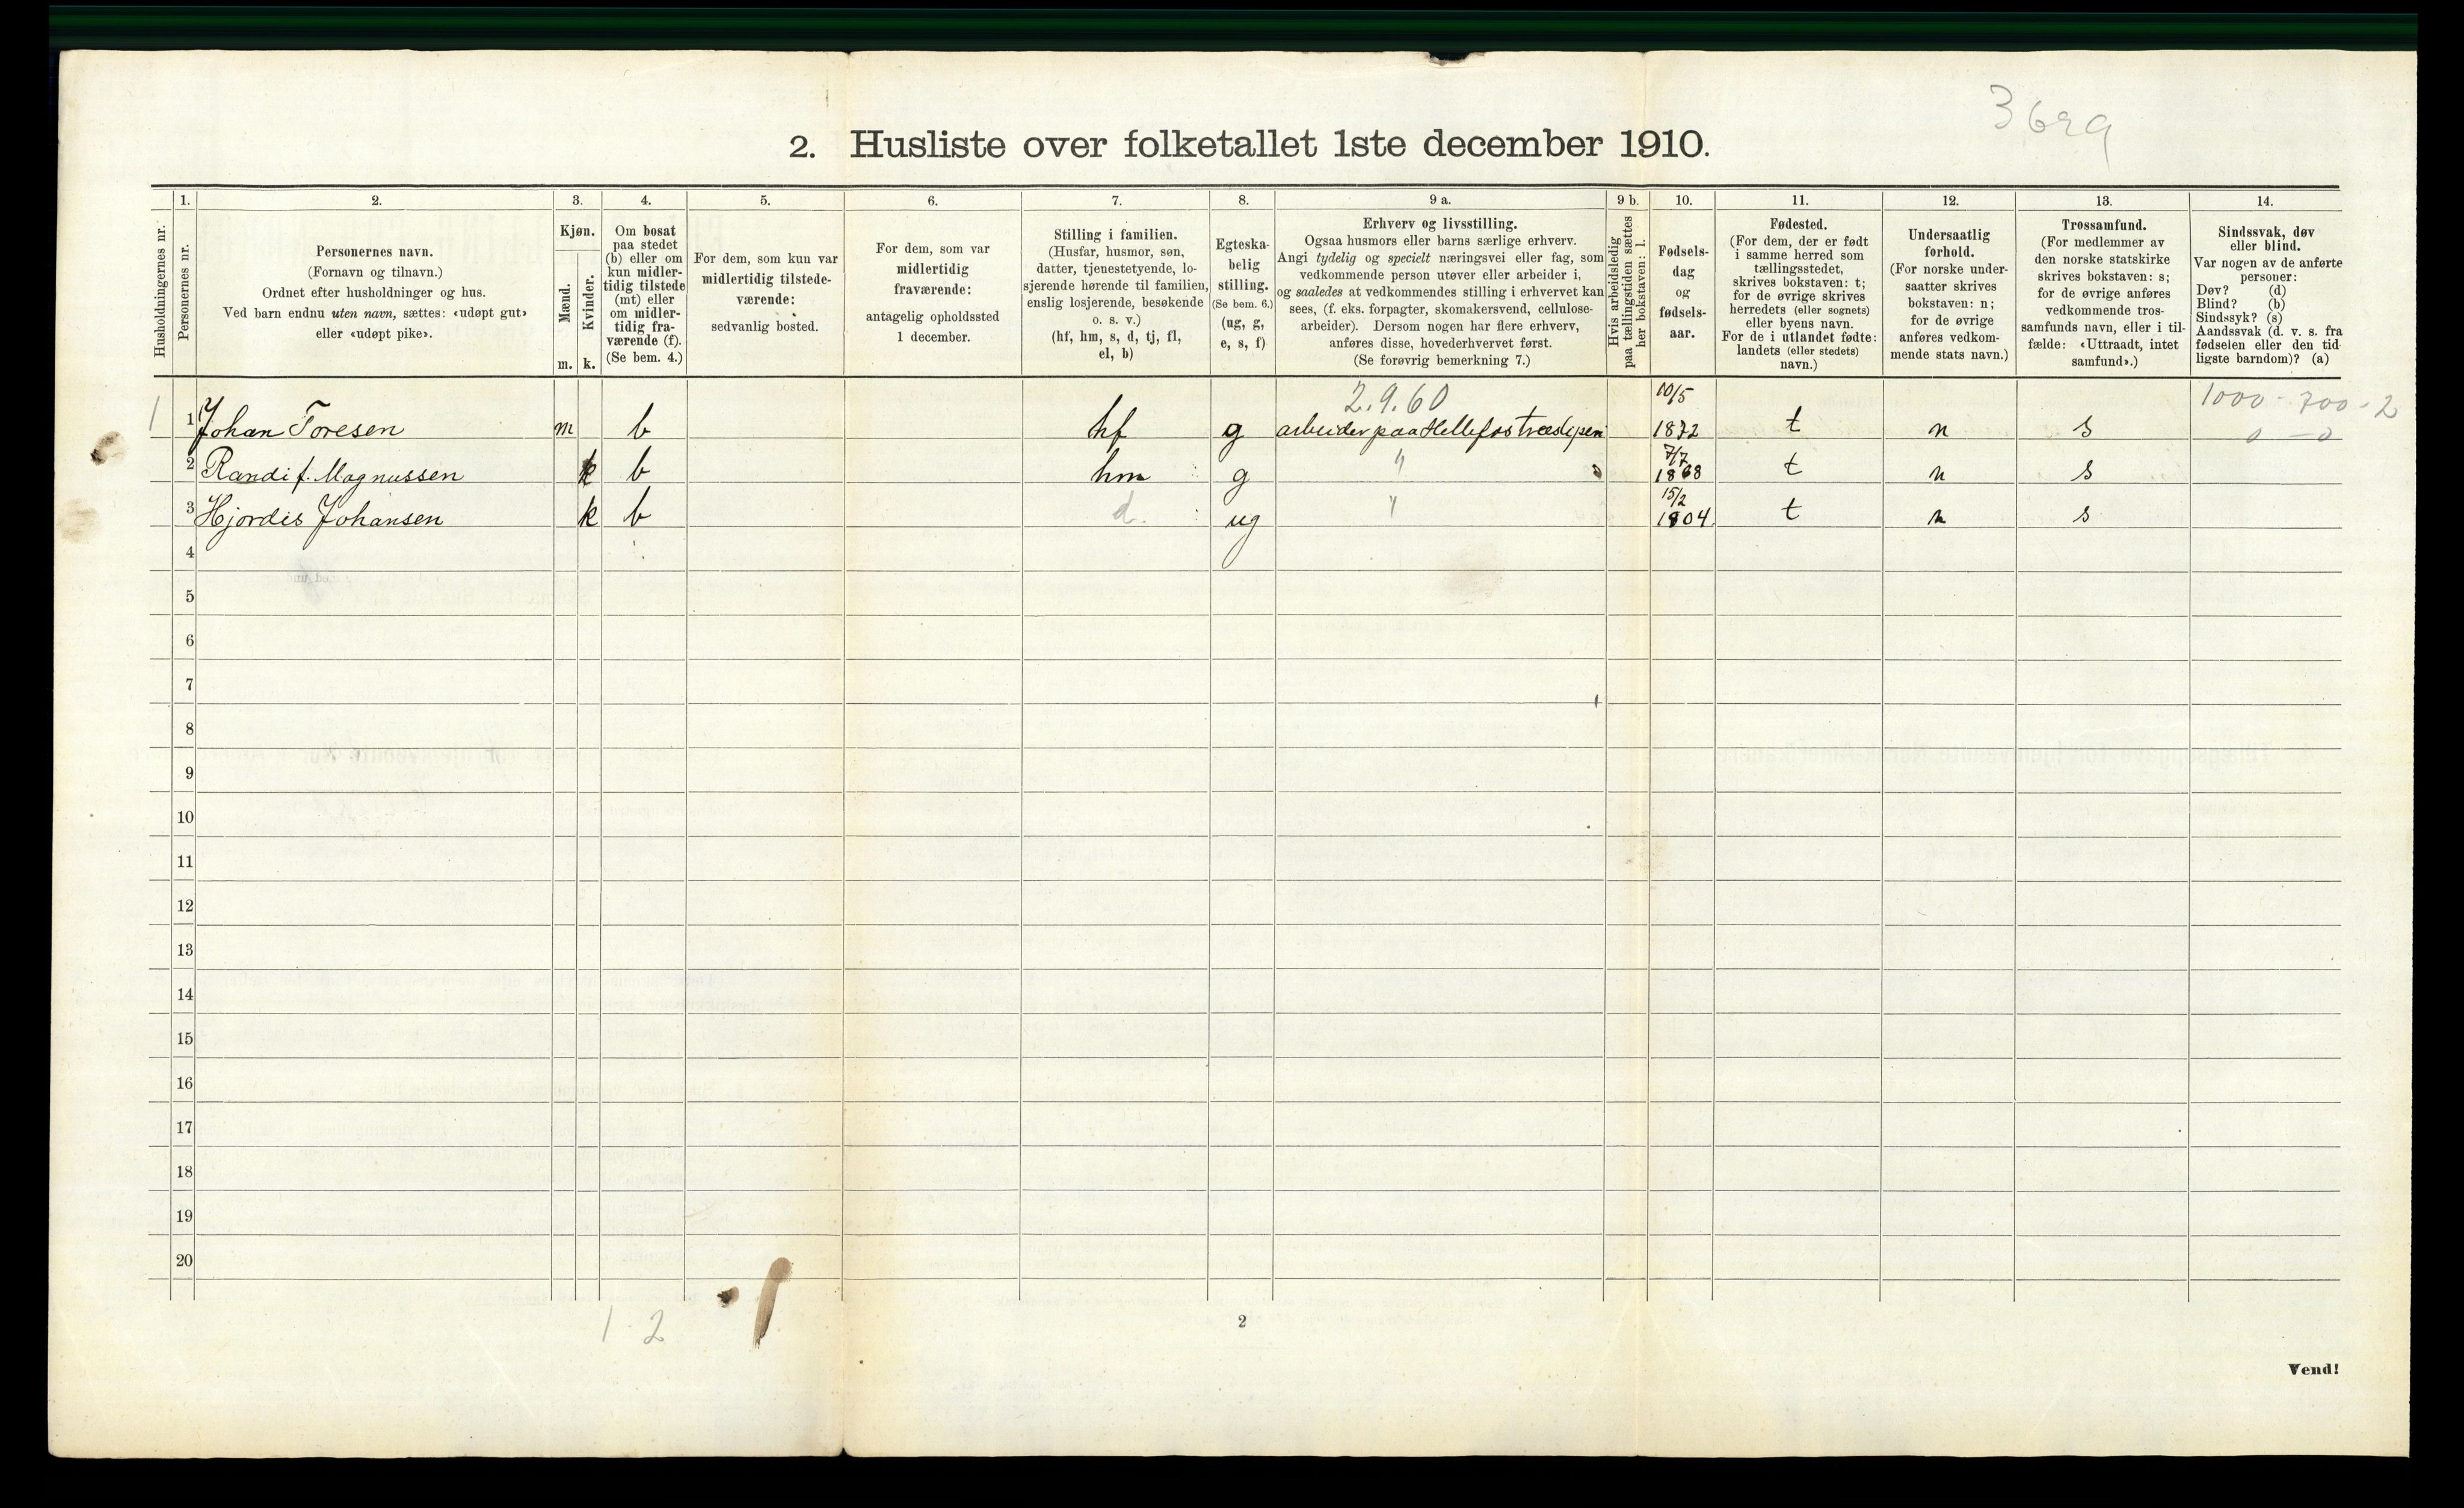 3629
2. Husliste over folketallet 1ste december 1910.
Husholdningernes nr.
1.
Personernes nr.
2.
Personernes navn.
(Fornavn og tilnavn.)
Ordnet efter husholdninger og hus.
Ved barn endnu uten navn, sættes: «udøpt gut»
eller «udøpt pike».
3.
Kjøn.
Mænd.
m.
Kvinder.
k.
4.
Om bosat
paa stedet
(b) eller om
kun midler-
tidig tilstede
(mt) eller
om midler-
tidig fra-
værende (f).
(Se bem. 4.)
5.
For dem, som kun var
midlertidig tilstede-
værende:
sedvanlig bosted.
6.
For dem, som var
midlertidig
fraværende:
antagelig opholdssted
1 december.
7.
Stilling i familien.
(Husfar, husmor, søn,
datter, tjenestetyende, lo-
sjerende hørende til familien,
enslig losjerende, besøkende
o. s. v.)
(hf, hm, s, d, tj, fl,
el, b)
8.
Egteska-
belig
stilling.
(Se bem. 6.)
(ug, g,
e, s, f)
9 a.
Erhverv og livsstilling.
Ogsaa husmors eller barns særlige erhverv.
Angi tydelig og specielt næringsvei eller fag, som
vedkommende person utøver eller arbeider i,
og saaledes at vedkommendes stilling i erhvervet kan
sees, (f. eks. forpagter, skomakersvend, cellulose-
arbeider). Dersom nogen har flere erhverv,
anføres disse, hovederhvervet først.
(Se forøvrig bemerkning 7.)
9 b.
Hvis arbeidsledig
paa tællingstiden sættes
her bokstaven: l.
10.
Fødsels-
dag
og
fødsels-
aar.
11.
Fødested.
(For dem, der er født
i samme herred som
tællingsstedet,
skrives bokstaven: t;
for de øvrige skrives
herredets (eller sognets)
eller byens navn.
For de i utlandet fødte:
landets (eller stedets)
navn.)
12.
Undersaatlig
forhold.
(For norske under-
saatter skrives
bokstaven: n;
for de øvrige
anføres vedkom-
mende stats navn.)
13.
Trossamfund.
(For medlemmer av
den norske statskirke
skrives bokstaven: s;
for de øvrige anføres
vedkommende tros-
samfunds navn, eller i til-
fælde: «Uttraadt, intet
samfund».)
14.
Sindssvak, døv
eller blind.
Var nogen av de anførte
personer:
Døv? (d)
Blind? (b)
Sindssyk? (s)
Aandssvak (d. v. s. fra
fødselen eller den tid-
ligste barndom)? (a)
2.9.60 10/5 1000 - 700 - 2
1 1 Johan Toresen m b hf g arbeider paa Hellefos træsliperi 1872 t n s 0 - 0
7/7
2 Randi f. Magnussen k b hm g " 1868 t n s
15/2
3 Hjordis Johansen k b d. ug " 1904 t n s
4
5
6
7
8
9
10
11
12
13
14
15
16
17
18
19
20
1 - 2
2
Vend!